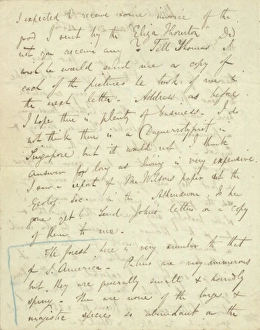 I expected to receive some invoice of the
goods sent by the "Eliza Thornton" did
not you receive any. Tell Thomas I
wish he would send me a copy of
each of the pictures he took of me & in
the next letter. Address as before.
I hope there is plenty of business. I do
not think there is a Daguerrotypist in
Singapore but it would not I think
answer for long as living is very expensive.
I saw a report of Mr Wilson's paper at the
Geolog. Soc. in the Athenaeum. Is he
gone yet? Send John's letters or a copy
of them to me.
The forest here is very similar to that
of S. America. Palms are very numerous
but they are generally small & horridly
spiny. There are none of the large &
majestic species so abundant on the